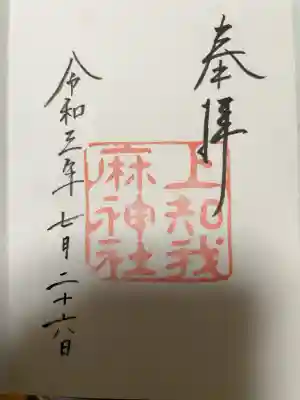 奉拝
上知我
麻神社
令和三年七月二十六日